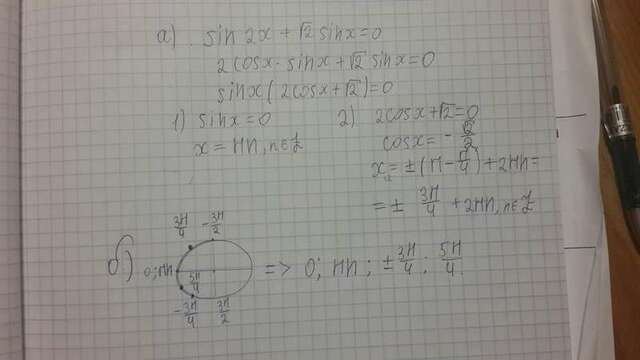 а) sin 2x + √2 sinx = 0
2cosx · sinx + √2 sinx = 0
sinx(2cosx + √2) = 0
1) sinx = 0
x = πn, n∈Z
2) 2cosx + √2 = 0
cosx = -√2/2
x = ±(π - π/4) + 2πn =
= ± 3π/4 + 2πn, n∈Z
3π/4 -3π/2
б) 0; πn 5π/4 => 0; πn; ±3π/4; 5π/4
-3π/4 3π/2